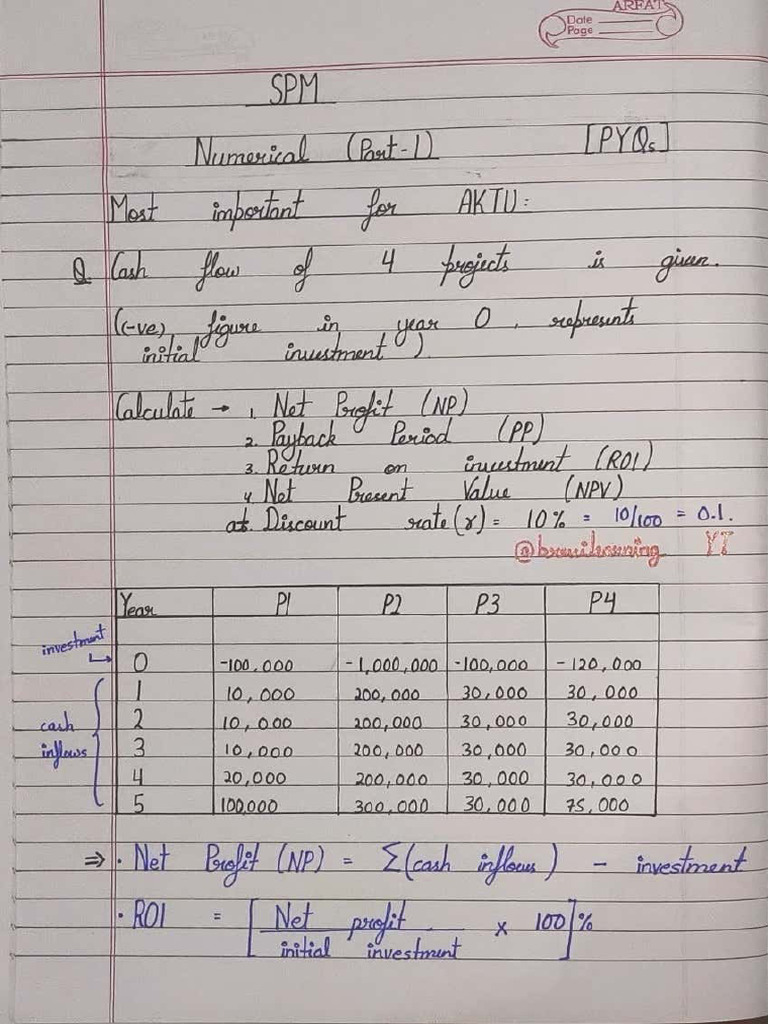 ARFAT
Date
Page
SPM
Numerical (Part-1) [PYQs]
Most important for AKTU:
Q Cash flow of 4 projects is given.
((-ve) figure in year 0, represents
initial investment)
Calculate → 1. Net Profit (NP)
2. Payback Period (PP)
3. Return on investment (ROI)
4 Net Present Value (NPV)
at Discount rate (r) = 10% = 10/100 = 0.1.
YT
Year P1 P2 P3 P4
investment
0 -100,000 -1,000,000 -100,000 -120,000
1 10,000 200,000 30,000 30,000
cash 2 10,000 200,000 30,000 30,000
inflows 3 10,000 200,000 30,000 30,000
4 20,000 200,000 30,000 30,000
5 100,000 300,000 30,000 75,000
⇒ • Net Profit (NP) = Σ(cash inflows) - investment
• ROI = [Net profit × 100]%
initial investment